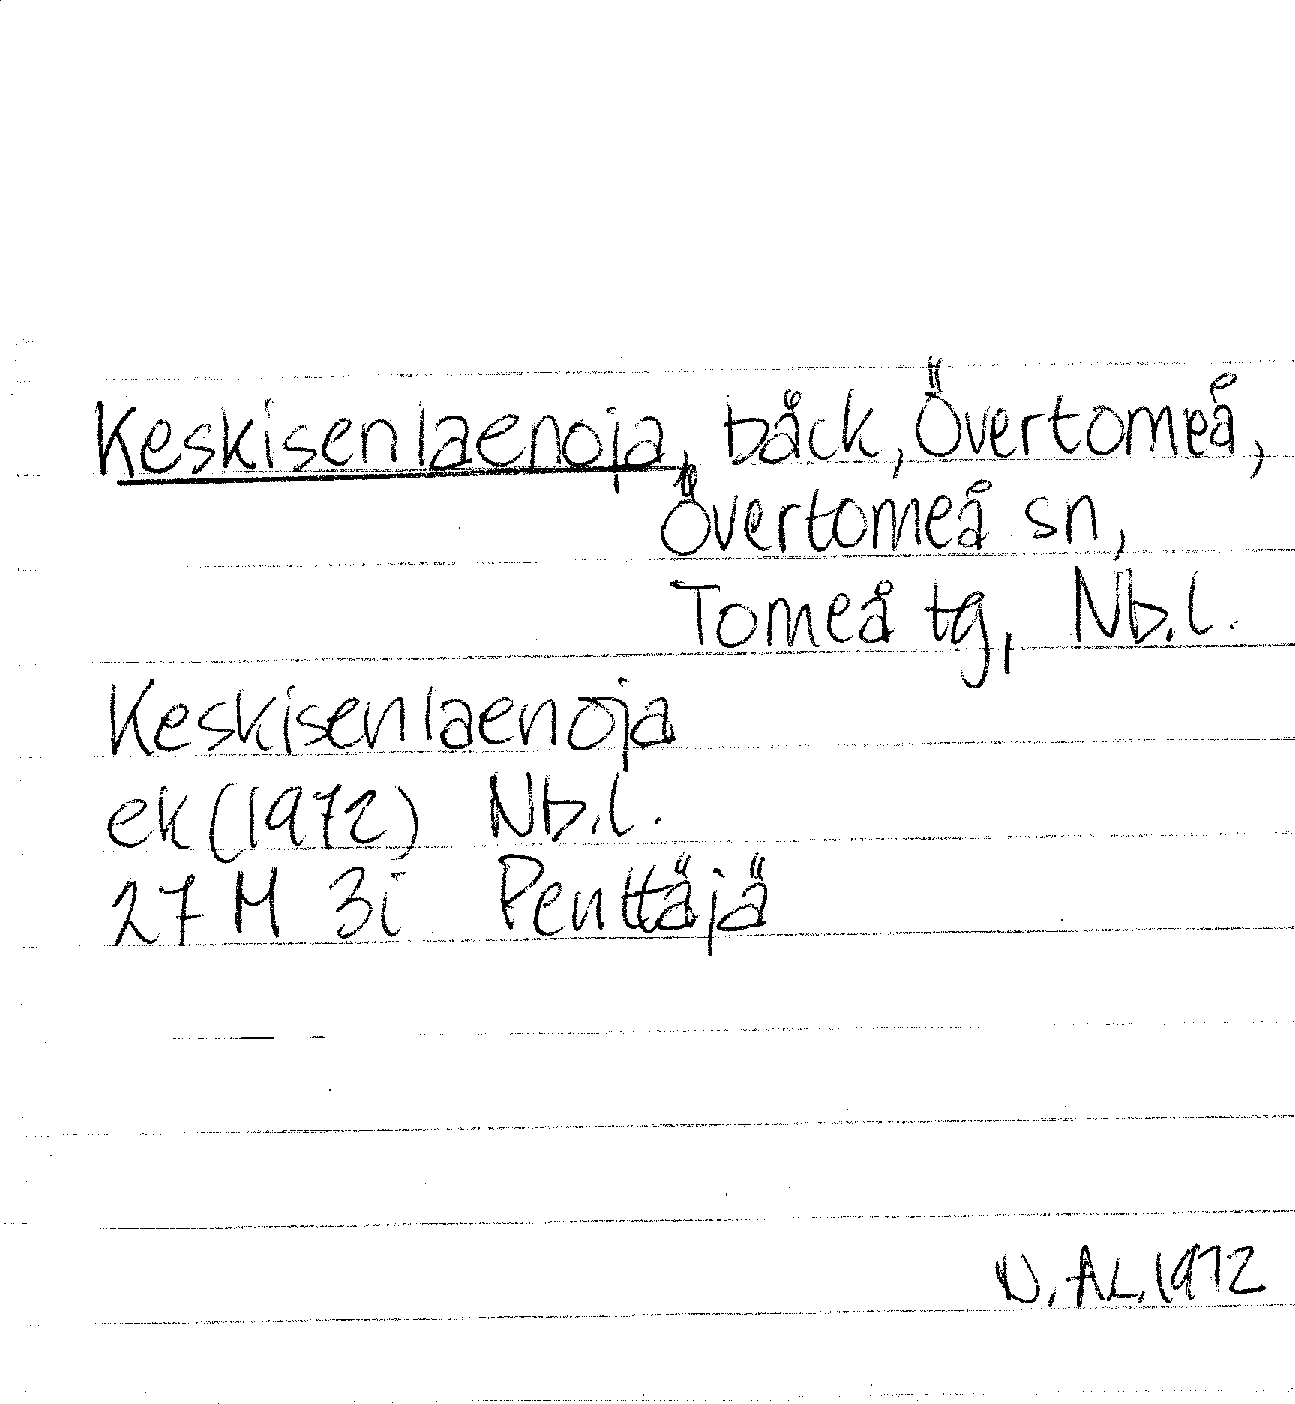 Keskisenlaenoja, båck, Övertomeå,
Övertomeå sn,
Tomeå tg, Nb.l.
Keskisenlaenoja
ek (1972) Nb.l.
27 M 3i Penttäjä
N.AL.1972